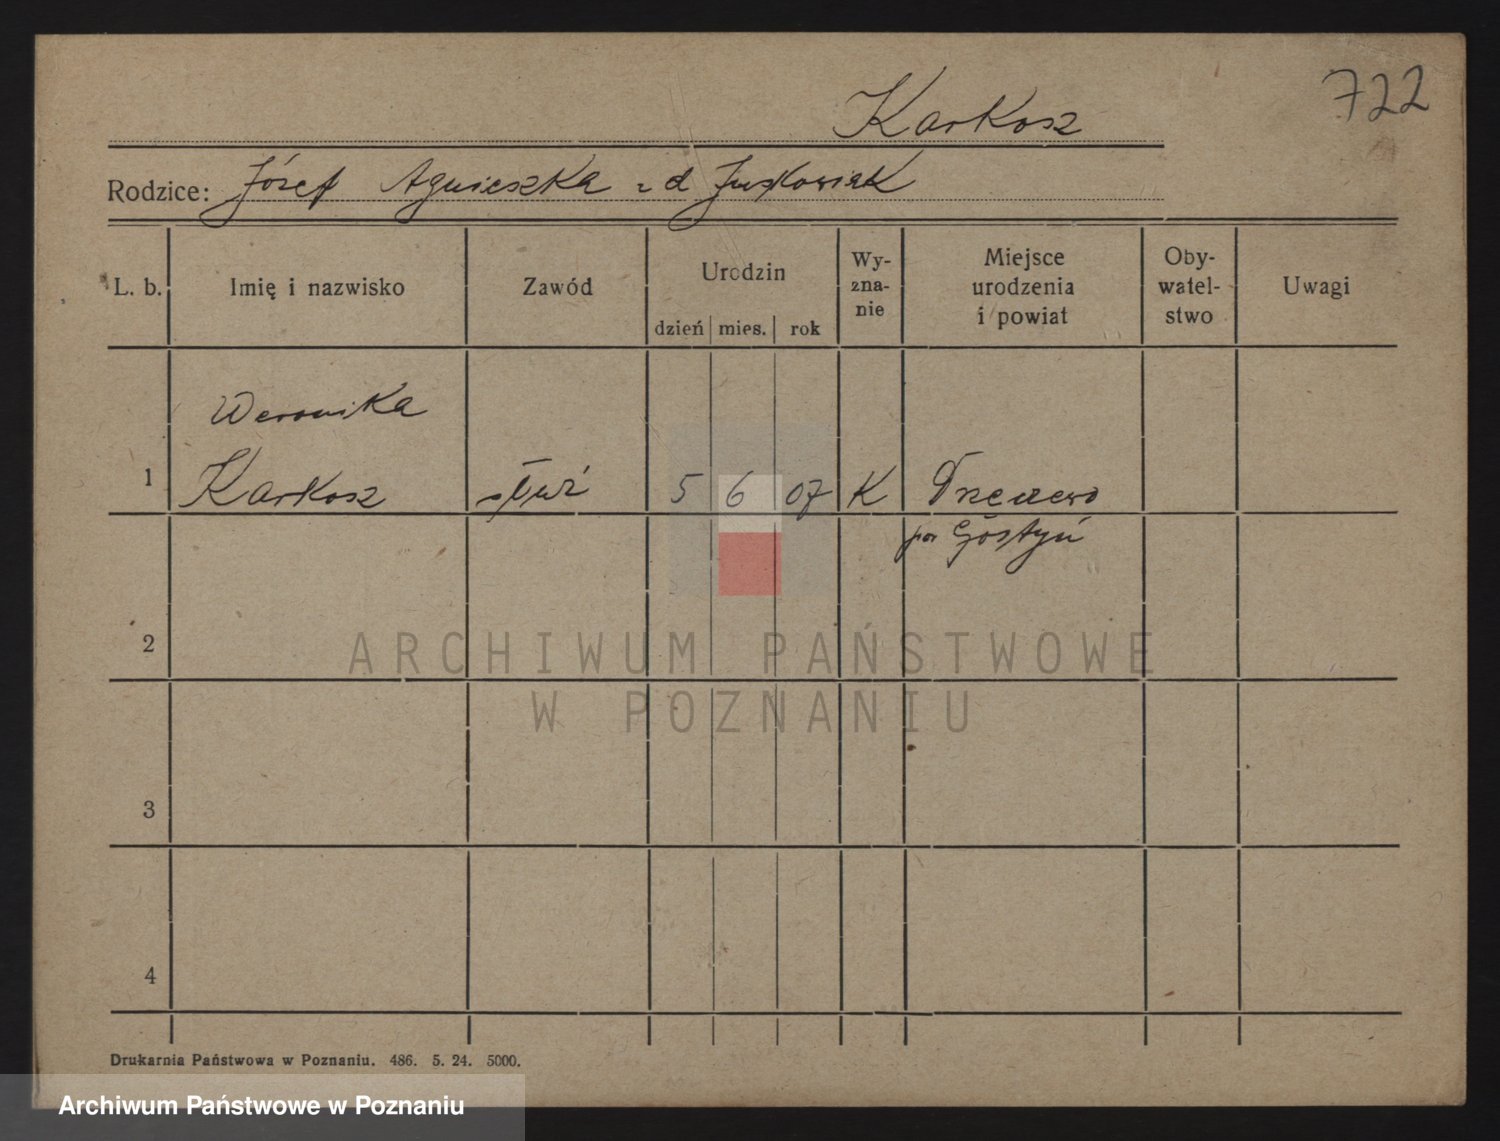 722
Karkosz
Rodzice: Józef Agnieszka z d Juskowiak
L. b. Imię i nazwisko Zawód Urodzin dzień mies. rok Wy-zna-nie Miejsce urodzenia i powiat Oby-watel-stwo Uwagi
Weronika
1 Karkosz służ 5 6 07 K
pow Gostyń
2
ARCHIWUM PAŃSTWOWE
W POZNANIU
3
4
Drukarnia Państwowa w Poznaniu. 486. 5. 24. 5000.
Archiwum Państwowe w Poznaniu